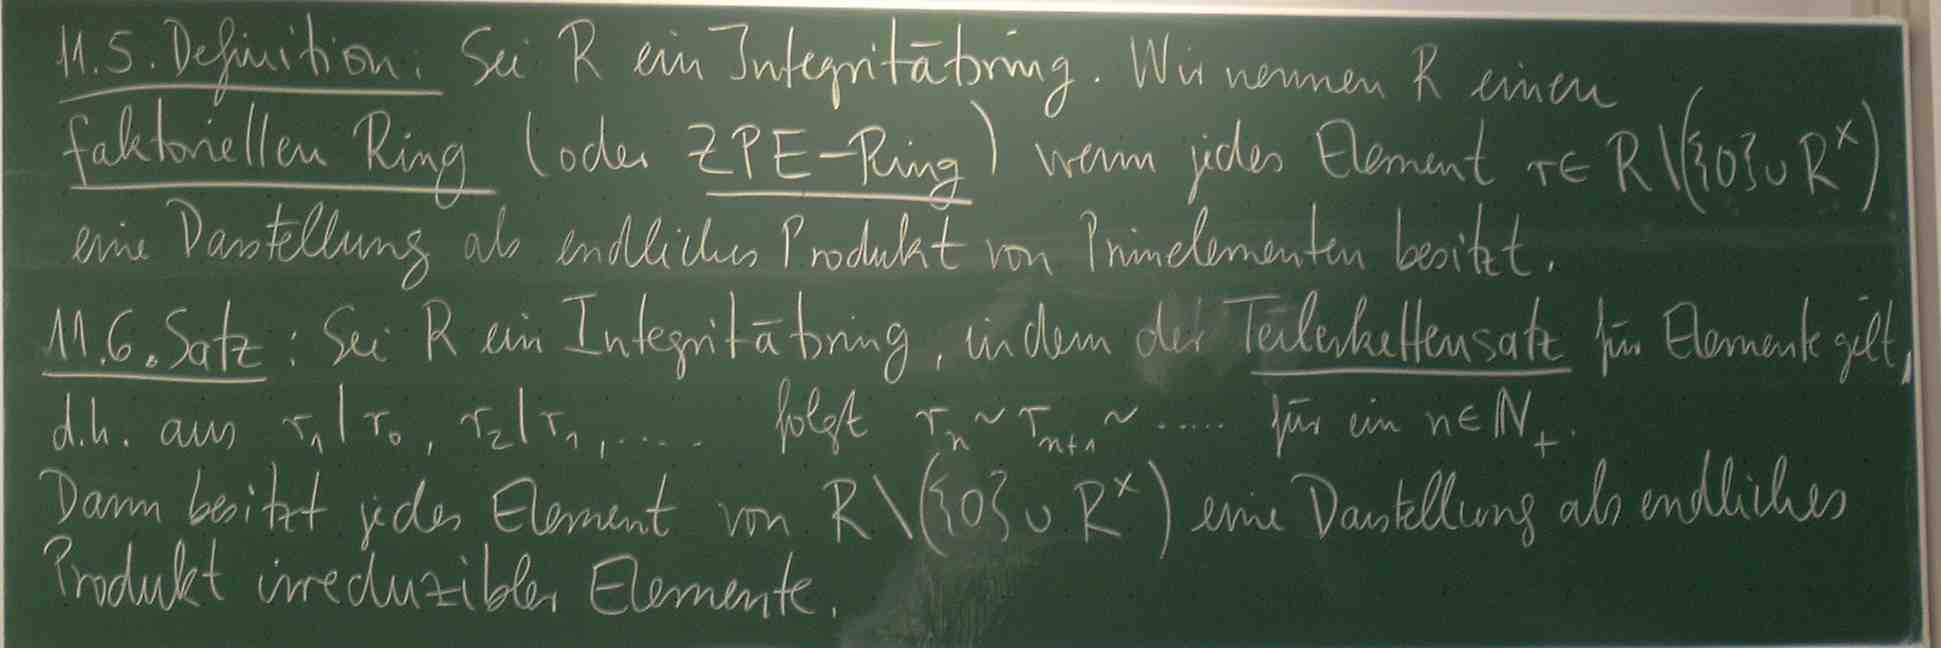 11.5. Definition: Sei R ein Integritätsring. Wir nennen R einen
faktoriellen Ring (oder ZPE-Ring) wenn jedes Element r ∈ R \ ({0} ∪ R^×)
eine Darstellung als endliches Produkt von Primelementen besitzt.
11.6. Satz: Sei R ein Integritätsring, in dem der Teilerkettensatz für Elemente gilt,
d.h. aus r₁ | r₀, r₂ | r₁, ..... folgt r_n ~ r_{n+1} ~ ..... für ein n ∈ ℕ₊.
Dann besitzt jedes Element von R \ ({0} ∪ R^×) eine Darstellung als endliches
Produkt irreduzibler Elemente.